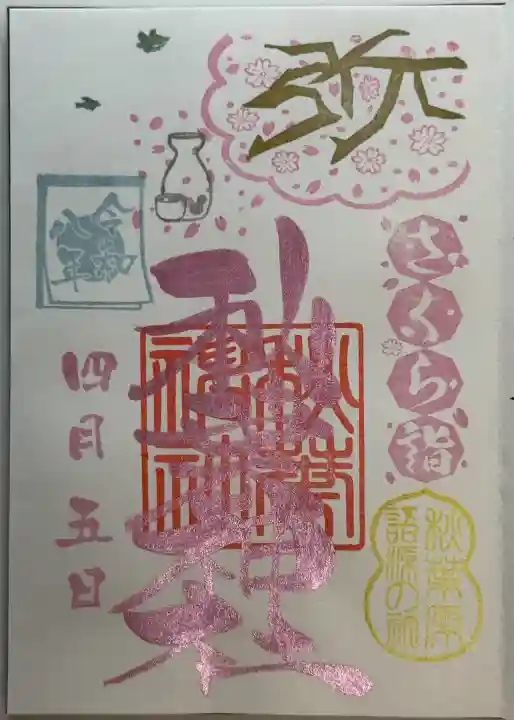 弥
さくら詣
秋葉原
語源の社
秋葉神社
秋葉
神社
令和
四月五日